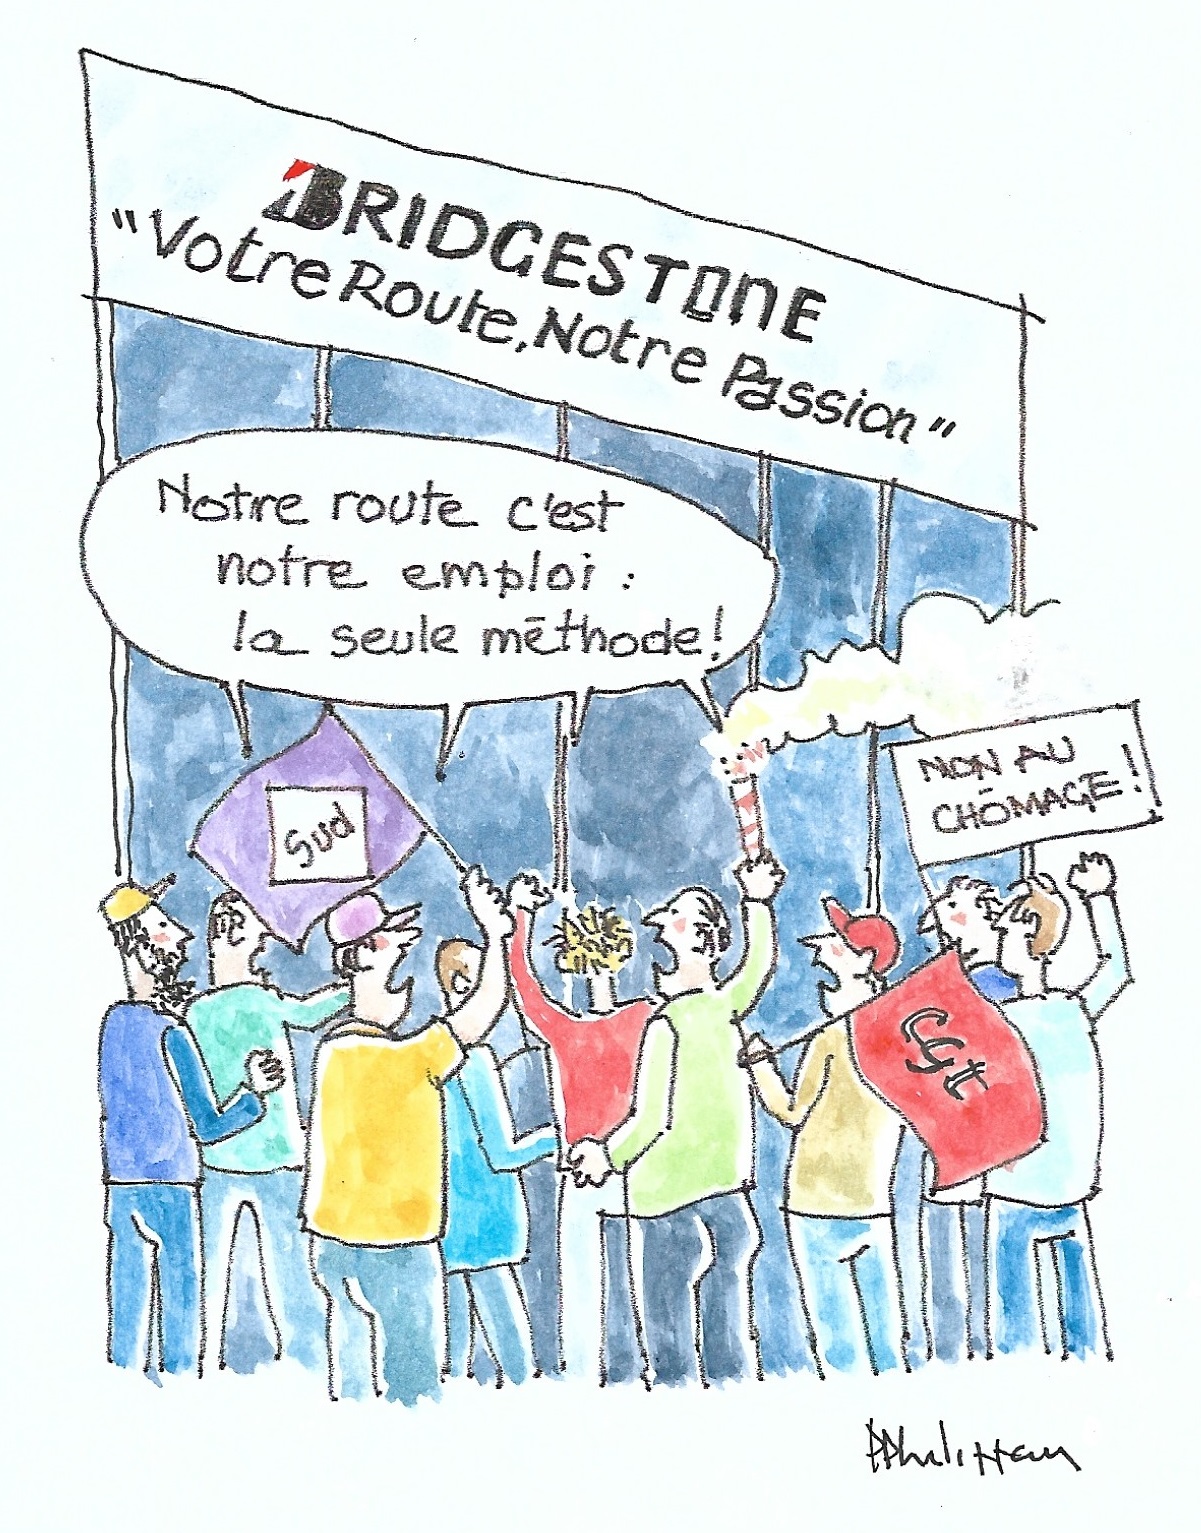 BRIDGESTONE
"Votre Route, Notre Passion"
Notre route c'est
notre emploi :
la seule méthode!
Sud
NON AU
CHÔMAGE!
CGT